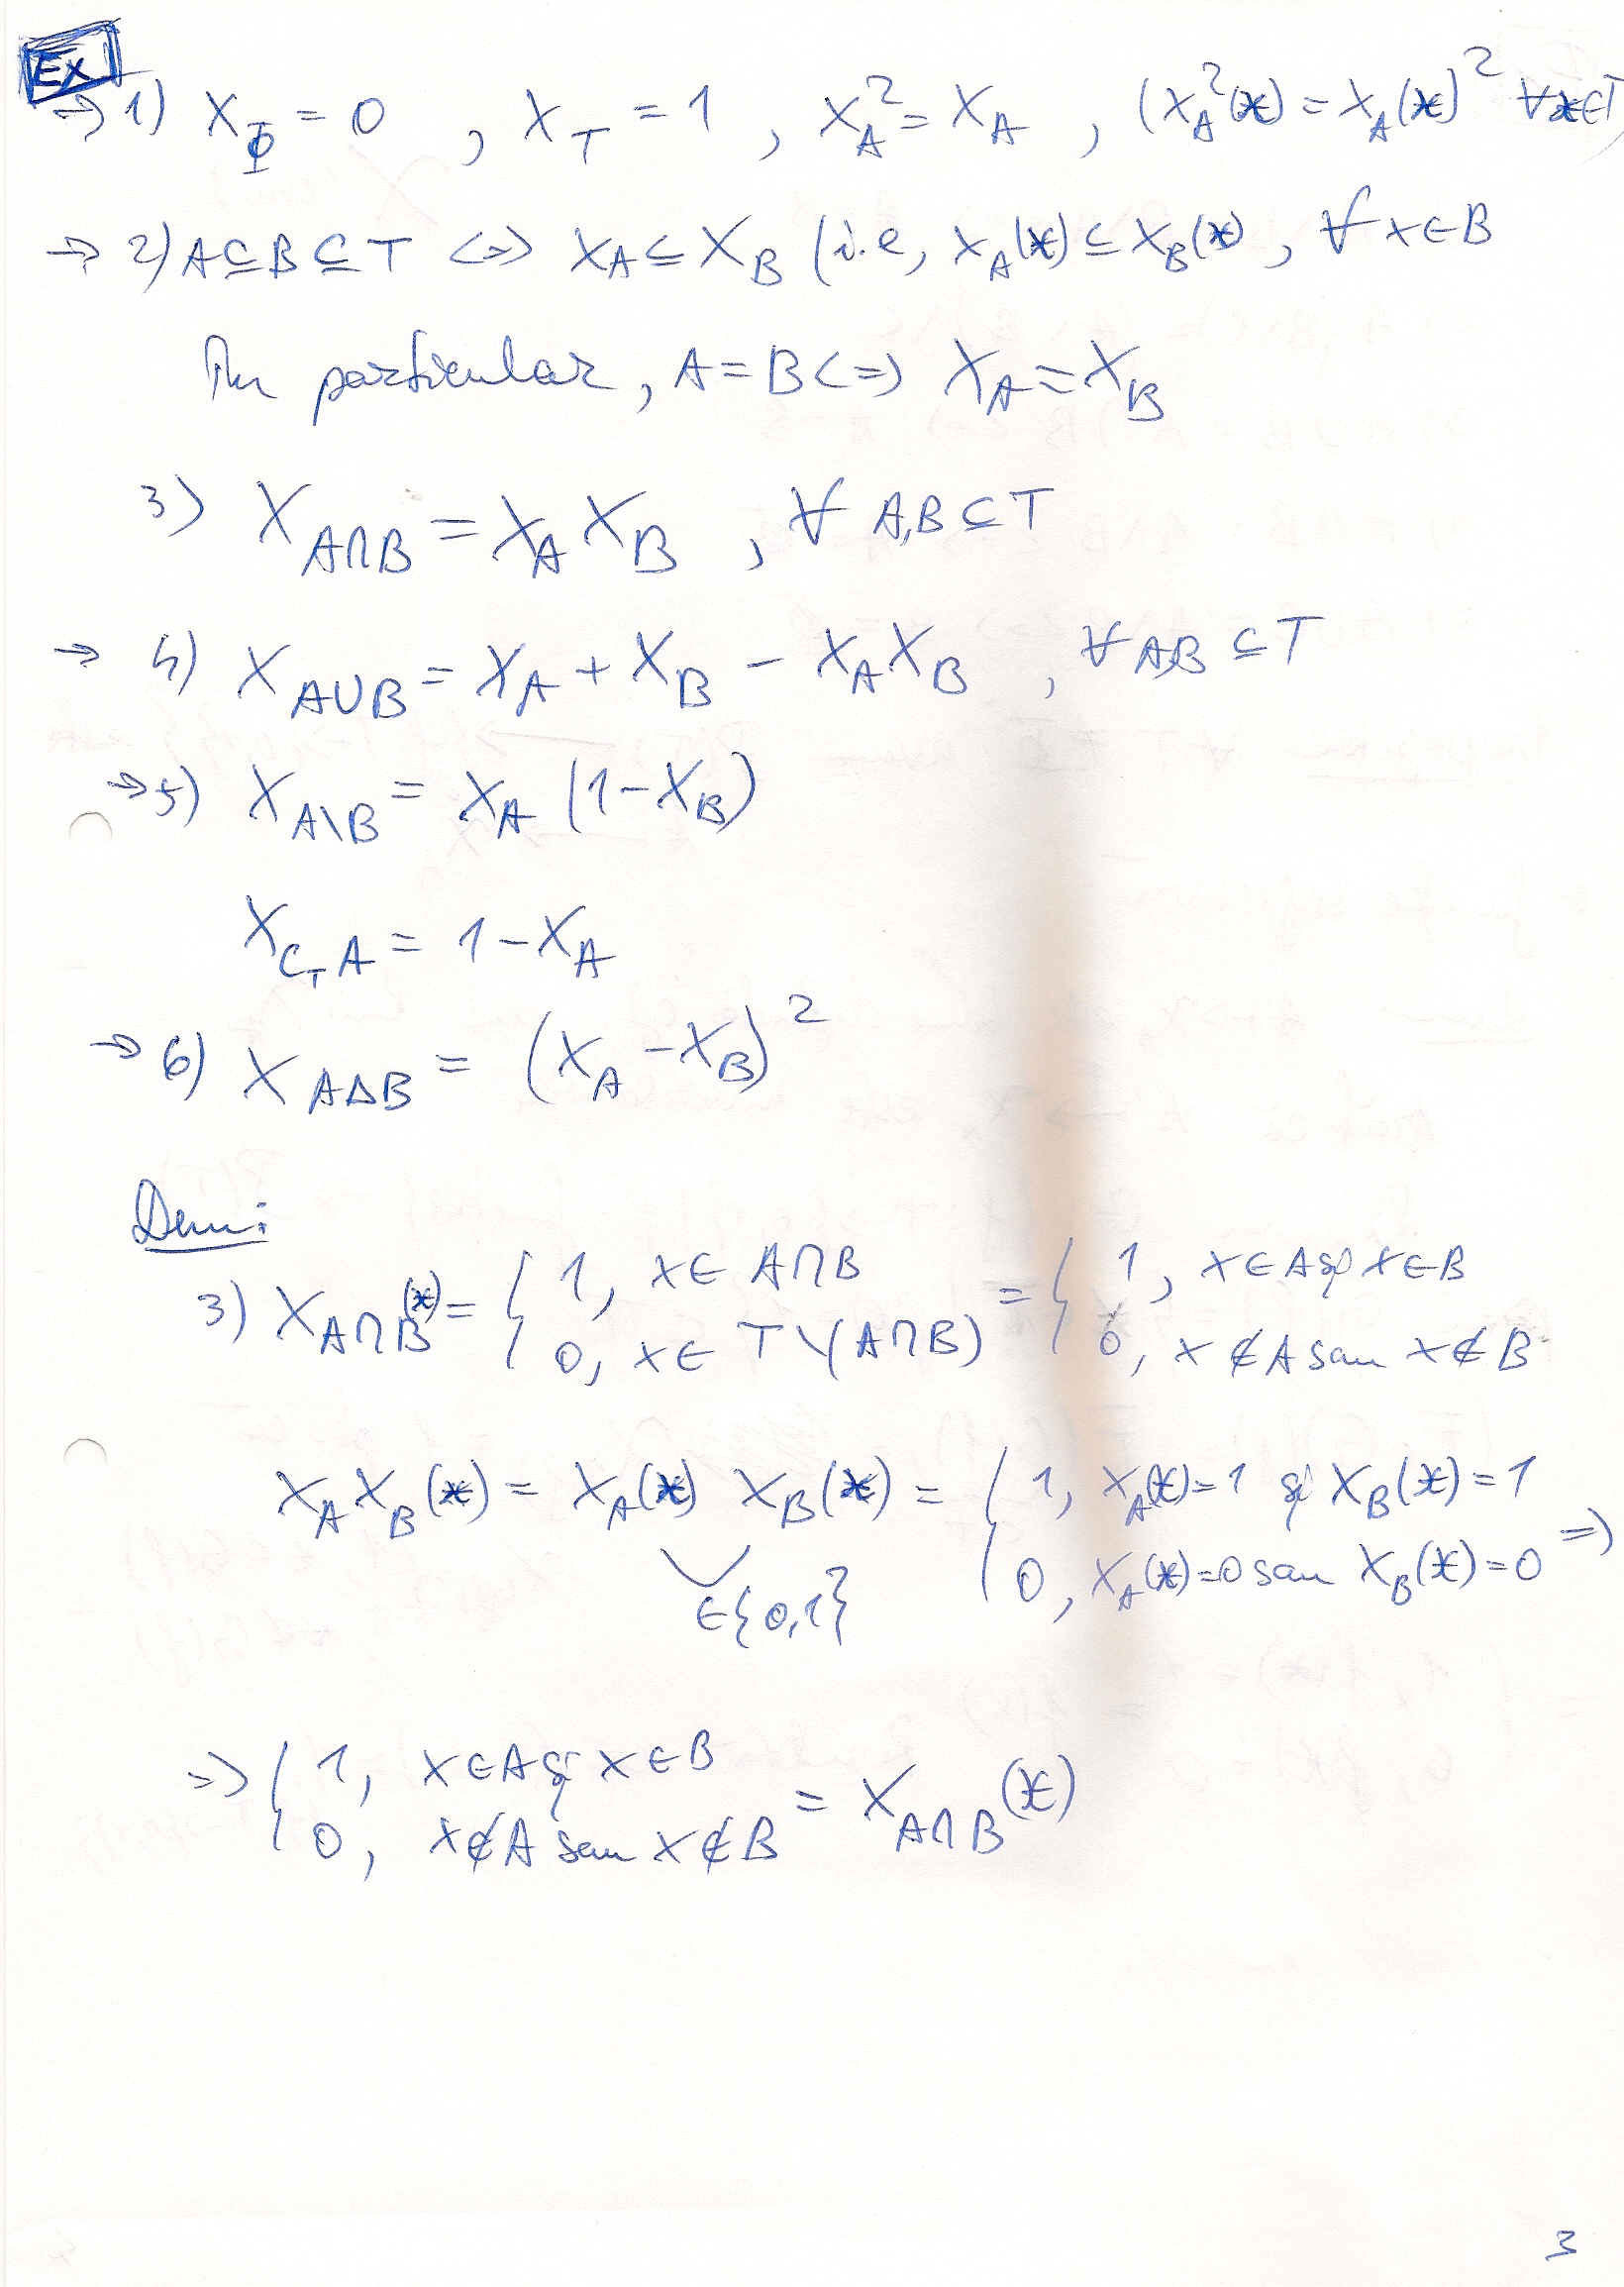 Ex
→ 1) χ_Φ = 0 , χ_T = 1 , χ_A² = χ_A , (χ_A²(x) = χ_A(x)² ∀x∈T)
→ 2) A⊆B⊆T <=> χ_A ≤ χ_B (i.e, χ_A(x) ≤ χ_B(x) , ∀ x∈B
În particular, A=B <=> χ_A = χ_B
3) χ_{A∩B} = χ_A χ_B , ∀ A,B ⊆ T
→ 4) χ_{A∪B} = χ_A + χ_B - χ_A χ_B , ∀ A,B ⊆ T
→ 5) χ_{A\B} = χ_A (1-χ_B)
χ_{C_T A} = 1-χ_A
→ 6) χ_{AΔB} = (χ_A - χ_B)²
Dem:
3) χ_{A∩B}(x) = { 1, x∈ A∩B = { 1, x∈A și x∈B
0, x∈ T\(A∩B) 0, x∉A sau x∉B
χ_A χ_B(x) = χ_A(x) χ_B(x) = { 1, χ_A(x)=1 și χ_B(x)=1
∈{0,1} 0, χ_A(x)=0 sau χ_B(x)=0 =>
=> { 1, x∈A și x∈B = χ_{A∩B}(x)
0, x∉A sau x∉B
3